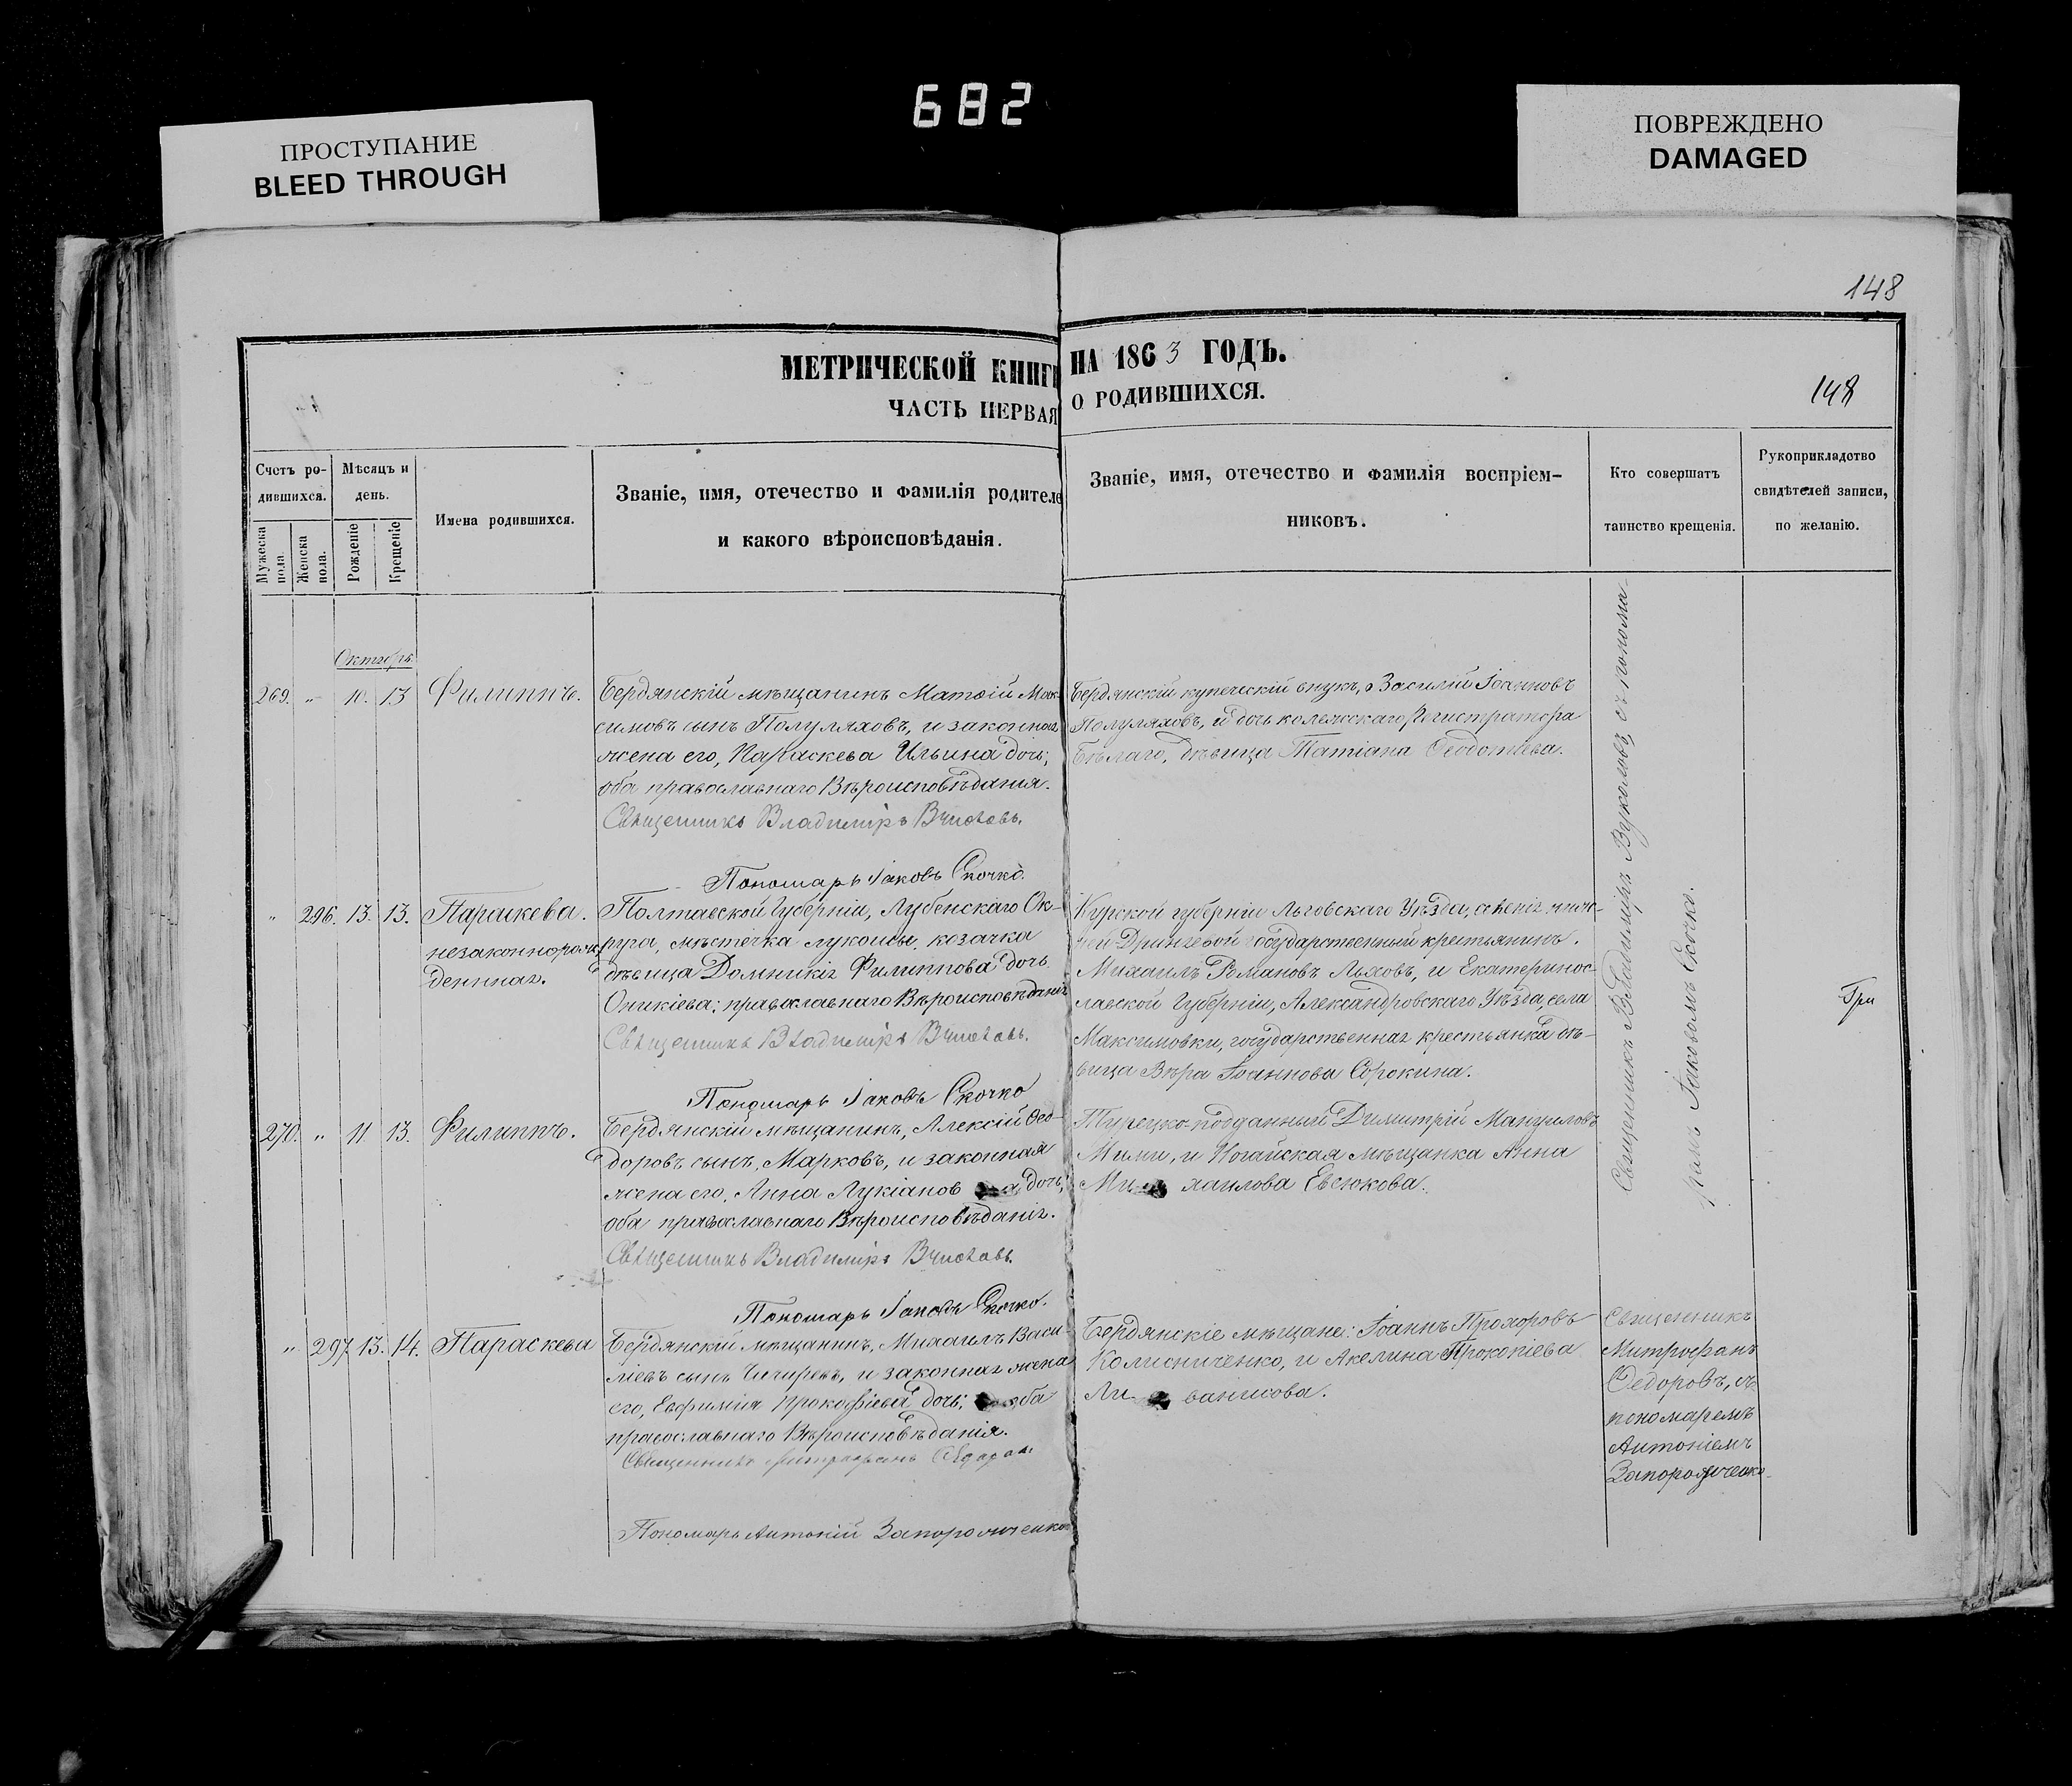 682
ПРОСТУПАНИЕ
BLEED THROUGH
ПОВРЕЖДЕНО
DAMAGED
148
МЕТРИЧЕСКОЙ КНИГИ НА 1863 ГОДЪ.
ЧАСТЬ ПЕРВАЯ О РОДИВШИХСЯ.
148
Счетъ ро-
дившихся.
Мужеска пола.
Женска пола.
Мѣсяцъ и
день.
Рожденіе
Крещеніе
Имена родившихся.
Званіе, имя, отечество и фамилія родителе
и какого вѣроисповѣданія.
Званіе, имя, отечество и фамилія воспріем-
никовъ.
Кто совершатъ
таинство крещенія.
Рукоприкладство
свидѣтелей записи,
по желанію.
Октябрь
269. " 10. 13 Филиппъ.
Бердянскій мѣщанинъ Матѳій Мак-
симовъ сынъ Полуляховъ, и законная
жена его, Параскева Ильина дочь;
оба православнаго Вѣроисповѣданія.
Священникъ Владиміръ
Пономарь Іаковъ Скочко.
Бердянскій купеческій внукъ, Василій Іоанновъ
Полуляховъ, и дочь колежскаго Регистратора
Бѣлаго, дѣвица Татіана Ѳеодотіева.
" 296. 13. 13. Параскева.
незаконнорож-
денная.
Полтавской Губерніи, Лубенскаго Ок-
руга, мѣстечка Лукомы, козачка
дѣвица Домникія Филиппова дочь
Оникіева; православнаго Вѣроисповѣданія
Священникъ Владиміръ
Пономарь Іаковъ Скочко
Курской губерніи Льговскаго Уѣзда,
государственный крестьянинъ.
Михаилъ Романовъ Ляховъ, и Екатеринос-
лавской Губерніи, Александровскаго Уѣзда, села
Максимовки, государственная крестьянка дѣ-
вица Вѣра Іоаннова Сорокина.
Гри
270. " 11. 13. Филиппъ.
Бердянскій мѣщанинъ, Алексій Ѳео-
доровъ сынъ, Марковъ, и законная
жена его, Анна Лукіанова дочь;
оба православнаго Вѣроисповѣданія.
Священникъ Владиміръ
Пономарь Іаковъ Скочко.
Турецко-подданный Димитрій Мануиловъ
Мими, и Ногайская мѣщанка Анна
Ми хаилова Евсюкова.
Священникъ Владиміръ Вуколовъ, съ понома-
Іаковомъ Скочко.
" 297. 13. 14. Параскева
Бердянскій мѣщанинъ, Михаилъ Васи-
ліевъ сынъ Чичиревъ, и законная жена
его, Евфимія Прокофіева дочь; оба
православнаго Вѣроисповѣданія.
Священникъ Митрофанъ Ѳедоров
Пономарь Антоній Запорожченко
Бердянскіе мѣщане: Іоаннъ Прохоровъ
Колисниченко, и Акелина Прокопіева
Священникъ
Митрофанъ
Ѳедоровъ, съ
пономаремъ
Антоніемъ
Запорожченко.